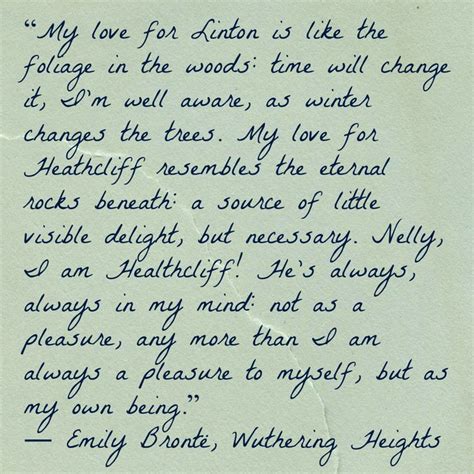 “My love for Linton is like the
foliage in the woods: time will change
it, I'm well aware, as winter
changes the trees. My love for
Heathcliff resembles the eternal
rocks beneath: a source of little
visible delight, but necessary. Nelly,
I am Healthcliff! He's always,
always in my mind: not as a
pleasure, any more than I am
always a pleasure to myself, but as
my own being.”
— Emily Brontë, Wuthering Heights